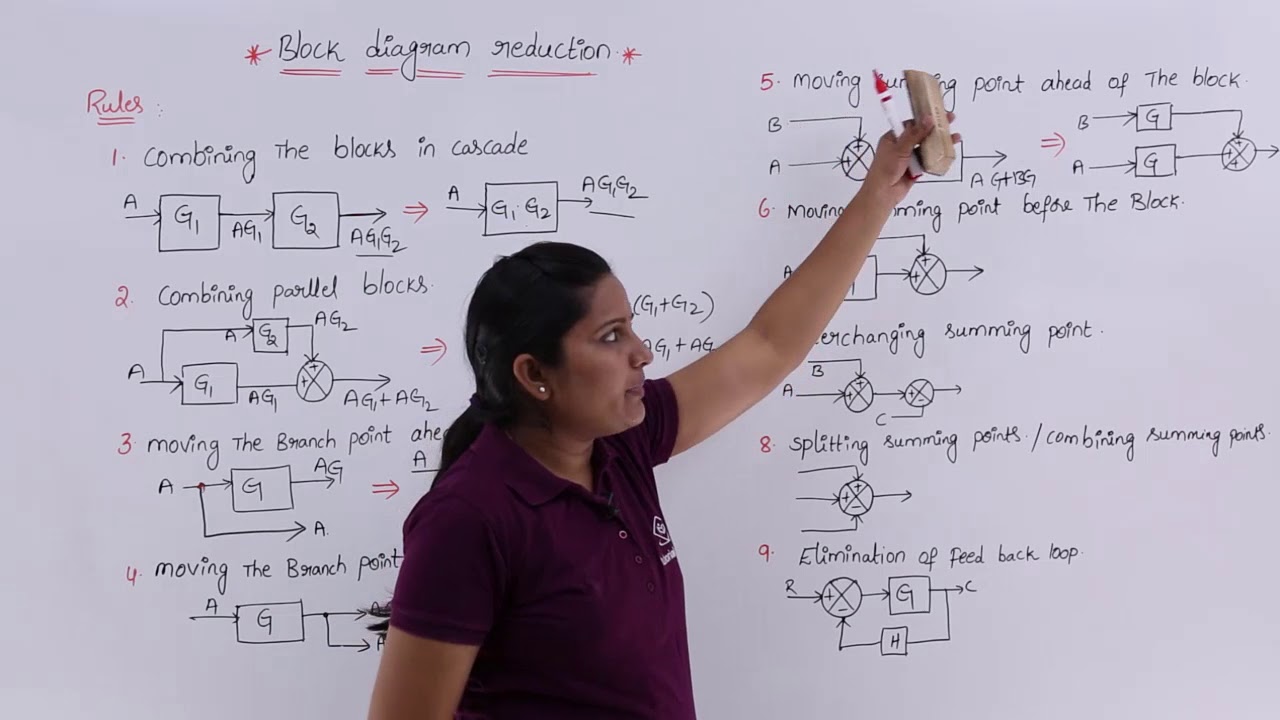 * Block diagram reduction *
Rules :
1. Combining The blocks in cascade
A G₁ AG₁ G₂ AG₁G₂ ⇒ A G₁·G₂ AG₁G₂
2. Combining parllel blocks.
A A G₂ AG₂
G₁ AG₁ + + AG₁+AG₂ ⇒
(G₁+G₂)
AG₁ + AG
3 moving The Branch point
A G AG ⇒ A
A.
4. moving The Branch point
A G
5. moving point ahead of The block.
B
A + + AG+BG ⇒ B G
A G + +
6. Moving point before The Block.
A + +
summing point.
B
A + + +
C
8. splitting summing points. / combining summing points.
+ + −
9. Elimination of feed back loop.
R + − G C
H